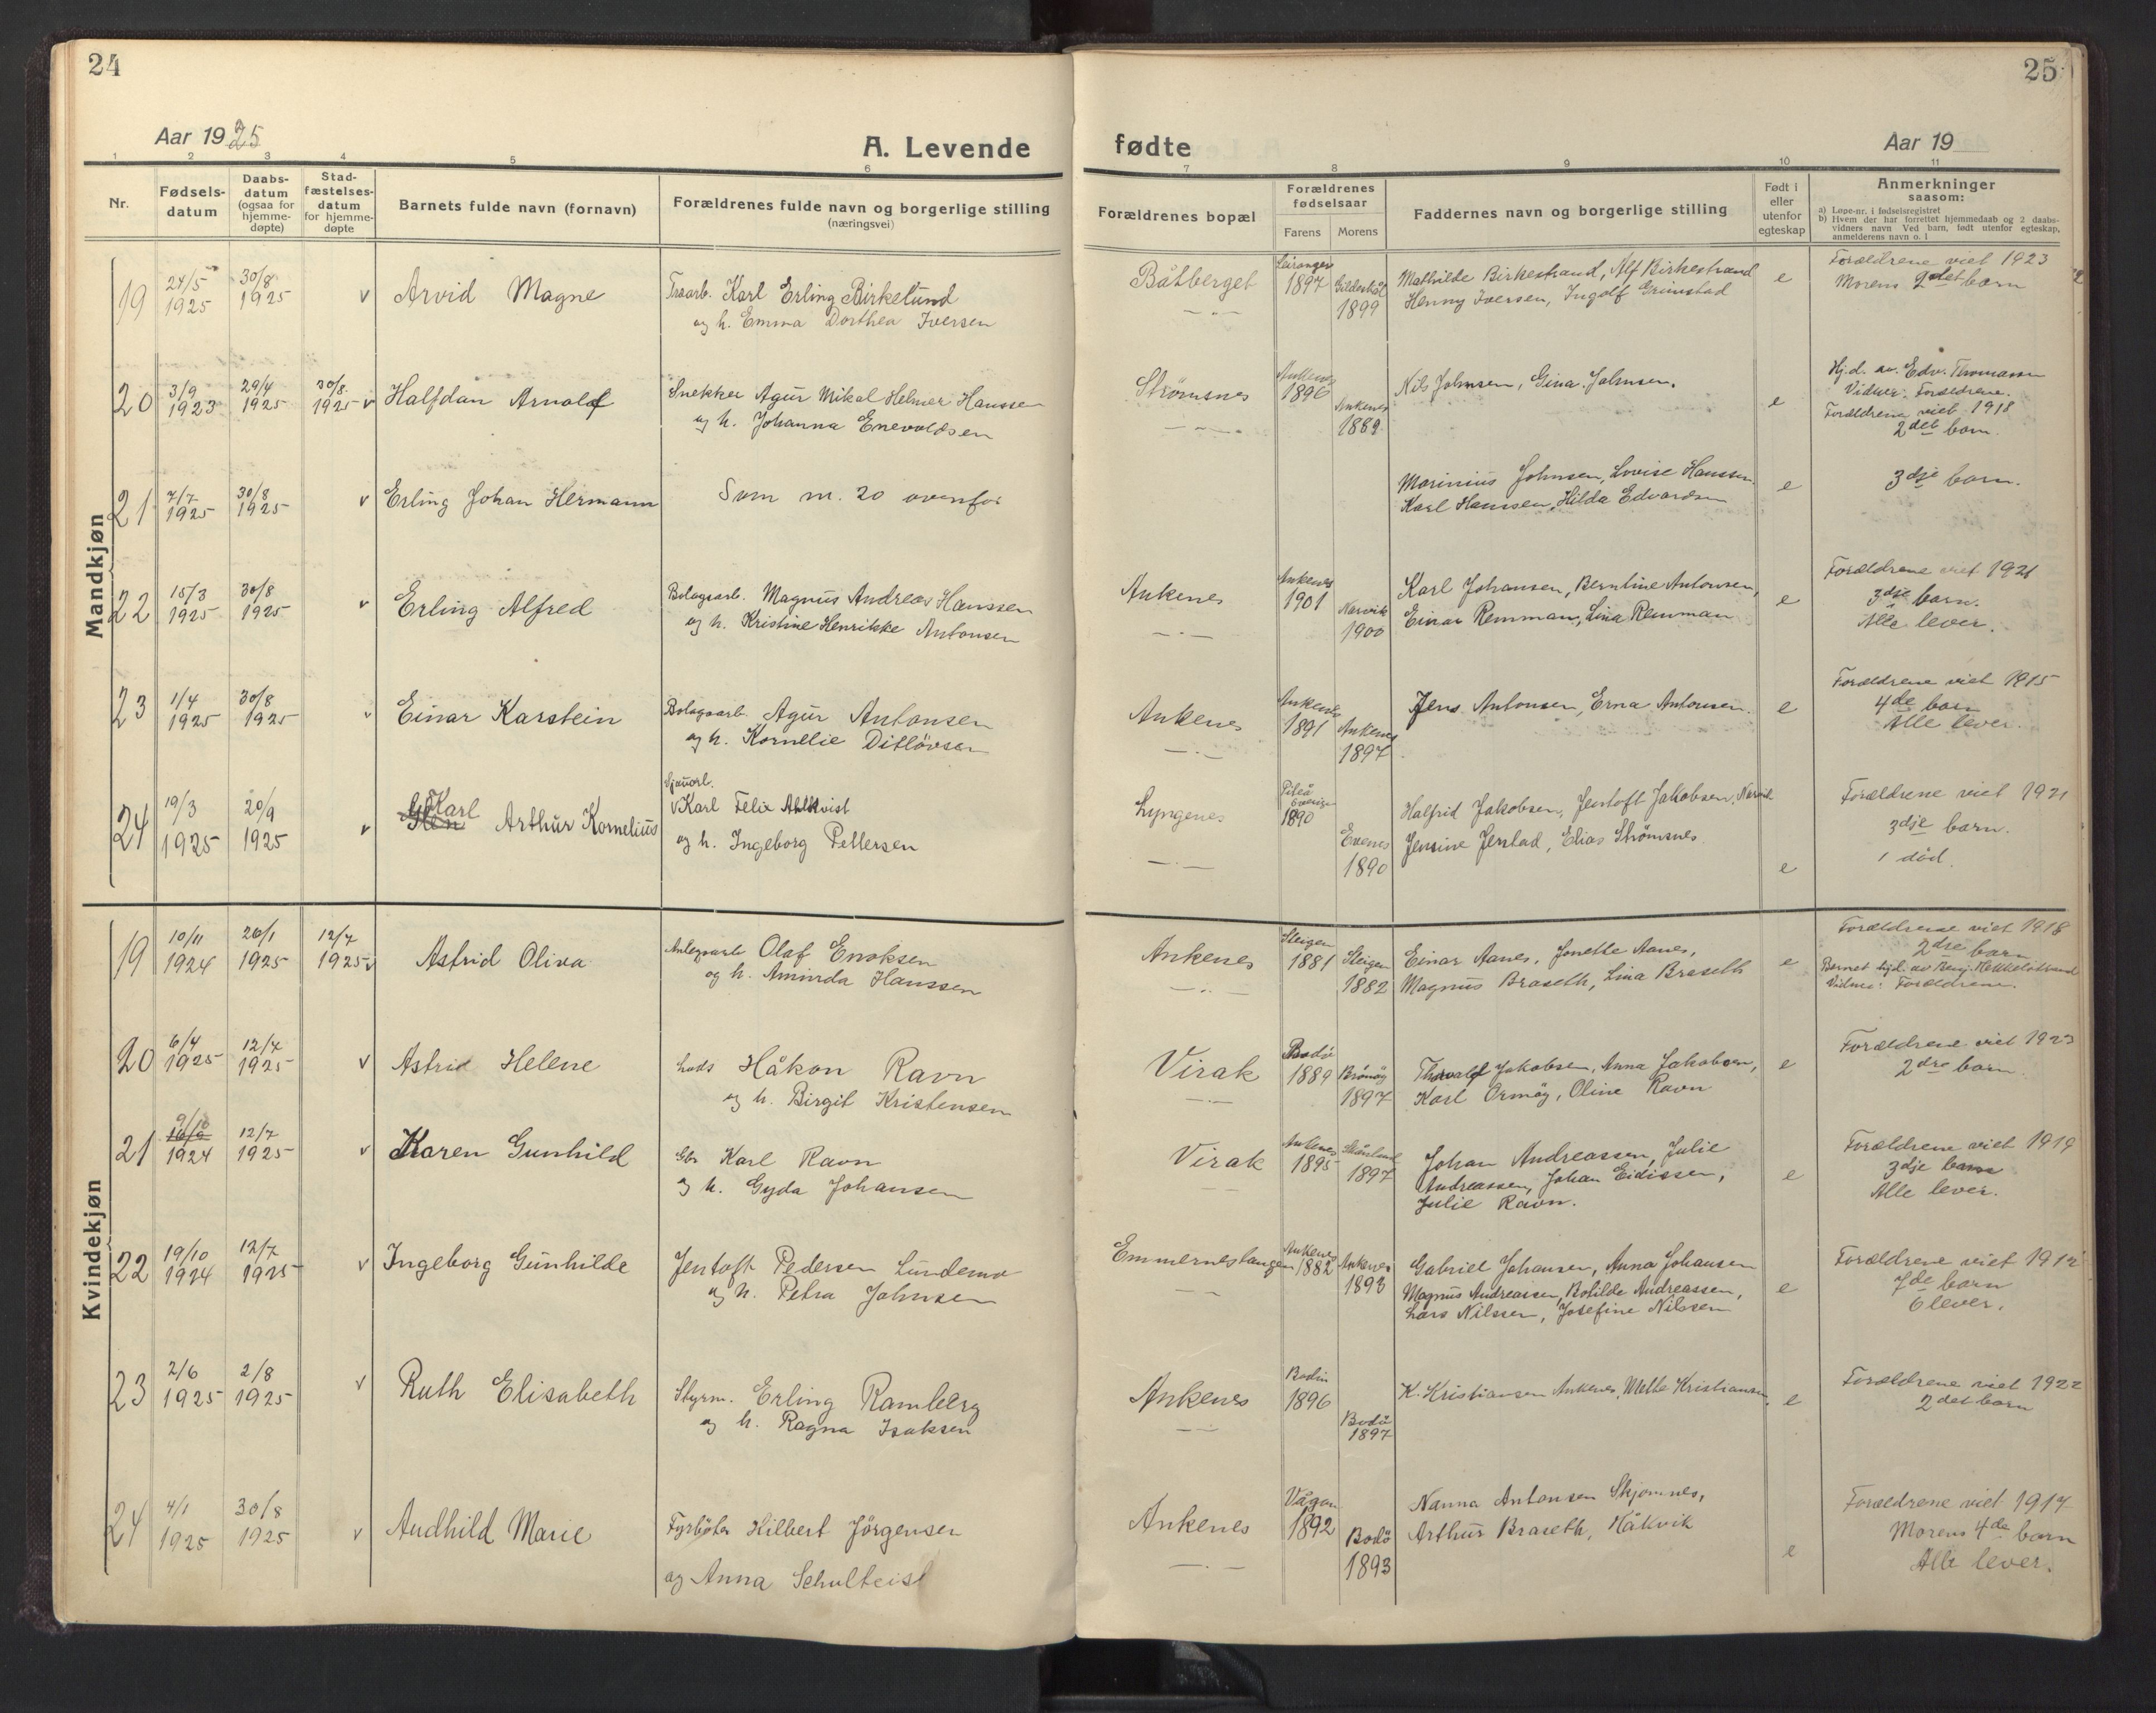 24
Aar 1925
A. Levende
1 2 3 4 5 6
Nr.
Fødsels-
datum
Daabs-
datum
(ogsaa for
hjemme-
døpte)
Stad-
fæstelses-
datum
for hjemme-
døpte
Barnets fulde navn (fornavn)
Forældrenes fulde navn og borgerlige stilling
(næringsvei)
Mandkjøn
19 24/5 1925 30/8 1925 v Arvid Magne
Karl Erling Birkelund
og h. Emma Dorthea Iversen
20 3/9 1923 29/4 1925 30/8 1925 v Halfdan Arnolf
Snekker Agur Mikal Helmer Hanssen
og h. Johanna Enevoldsen
21 7/7 1925 30/8 1925 v Erling Johan Hermann
Som nr. 20 ovenfor
22 15/3 1925 30/8 1925 v Erling Alfred
Bolagsarb. Magnus Andreas Hanssen
og h. Kristine Henrikke Antonsen
23 1/4 1925 30/8 1925 v Einar Karstein
Bolagsarb. Agur Antonsen
og h. Kornelie Ditløvsen
24 19/3 1925 20/9 1925 v Karl Arthur Kornelius
Sjauarb.
Karl Felix Ahlkvist
og h. Ingeborg Pettersen
Kvindekjøn
19 10/11 1924 26/1 1925 12/7 1925 v Astrid Oliva
Anlegsarb Olaf Enoksen
og h. Aminda Hanssen
20 6/4 1925 12/7 1925 v Astrid Helene
Lods Håkon Ravn
og h. Birgit Kristensen
21 9/10 1924 12/7 1925 v Karen Gunhild
Gbr Karl Ravn
og h. Gyda Johansen
22 19/10 1924 12/7 1925 v Ingeborg Gunhilde
Jentoft Pedersen Lundemo
og h. Petra Johnsen
23 2/6 1925 2/8 1925 v Ruth Elisabeth
Styrm. Erling Ramberg
og h. Ragna Isaksen
24 4/1 1925 30/8 1925 v Audhild Marie
Fyrbøter Hilbert Jörgensen
og Anna Schulteist
25
fødte
Aar 19
7 8 9 10 11
Forældrenes bopæl
Forældrenes
fødselsaar
Farens Morens
Faddernes navn og borgerlige stilling
Født i
eller
utenfor
egteskap
Anmerkninger
saasom:
a) Løpe-nr. i fødselsregistret
b) Hvem der har forrettet hjemmedaab og 2 daabs-
vidners navn Ved barn, født utenfor egteskap,
anmelderens navn o. l
Båtberget Leiranger 1897 Gildeskål 1899
Mathilde Birkestrand, Alf Birkestrand
Henny Iversen, Ingolf Grimstad
e
Forældrene viet 1923
Morens 2det barn
Strömsnes Ankenes 1896 Ankenes 1889
Nils Johnsen, Gina Johnsen.
e
Hj.d. av Edv. Thomassen
Vidner: Forældrene.
Forældrene viet 1918
2det barn.
Marinius Johnsen, Lovise Hanssen
Karl Hanssen, Hilda Edvardsen
e
3dje barn.
Ankenes Ankenes 1901 Narvik 1900
Karl Johansen, Berntine Antonsen,
Einar Remman, Lina Remman
e
Forældrene viet 1921
3dje barn.
Alle lever.
Ankenes Ankenes 1891 Ankenes 1897
Jens Antonsen, Erna Antonsen.
e
Forældrene viet 1915
4de barn
Alle lever.
Lyngenes Piteå Sverige 1890 Evenes 1890
Halfrid Jakobsen, Jentoft Jakobsen, Narvik
Jensine Jenstad, Elias Strömsnes
e
Forældrene viet 1921
3dje barn.
1 död.
Ankenes Steigen 1881 Steigen 1882
Einar Aanes, Jonette Aanes,
Magnus Braseth, Lina Braseth
e
Forældrene viet 1918
2dre barn
Barnet hjd. av Benj.
Vidner: Forældrene.
Virak Bodö 1889 Brönöy 1897
Thorvalf Jakobsen, Anna Jakobsen,
Karl Ormöy, Oline Ravn
e
Forældrene viet 1923
2dre barn.
Virak Ankenes 1895 Skånland 1897
Johan Andreassen, Julie
Andreassen, Johan Eidissen,
Julie Ravn.
e
Forældrene viet 1919
3dje barn
Alle lever.
Emmerneslangen Ankenes 1882 Ankenes 1893
Gabriel Johansen, Anna Johansen
Magnus Andreassen, Bolilde Andreassen,
Lars Nilssen, Josefine Nilssen
e
Forældrene viet 1912
7de barn
6 lever.
Ankenes Bodin 1896 Bodö 1897
K. Kristiansen Ankenes, Methe Kristiansen,
e
Forældrene viet 1922
2det barn
Ankenes Vågan 1892 Bodö 1893
Nanna Antonsen Skjomnes,
Arthur Braseth, Håkvik
e
Forældrene viet 1917
Morens 4de barn
Alle lever.